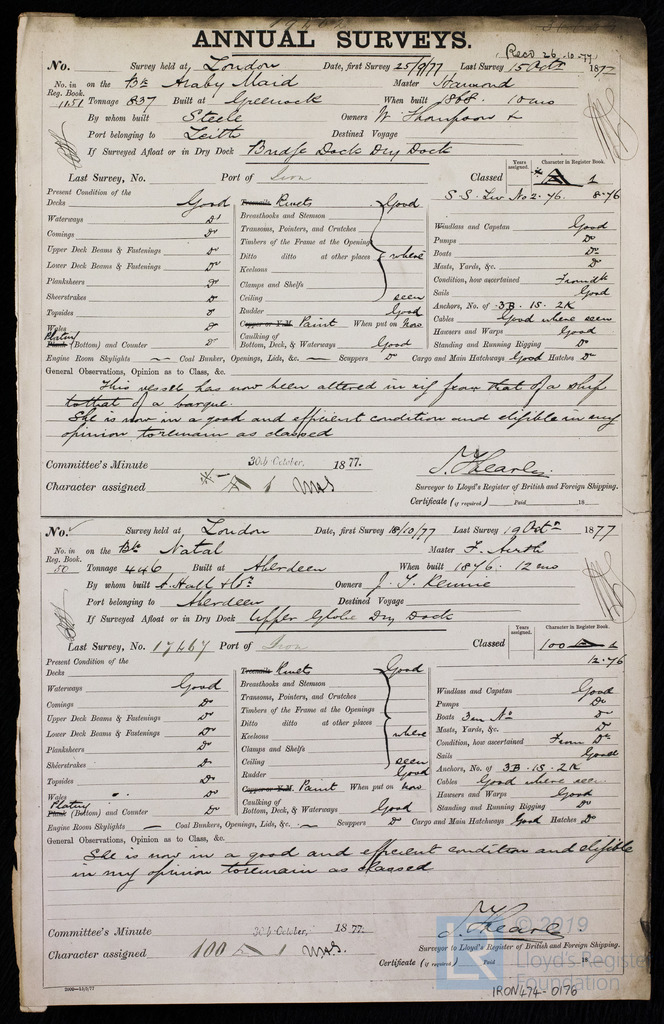 ANNUAL SURVEYS.
Recd 26.10.77
No. Survey held at London Date, first Survey 25/9/77 Last Survey 15 Octr 1877
No. in Reg. Book. 1151 on the Bk Araby Maid Master Hamond
Tonnage 837 Built at Greenock When built 1868. 10 mo
By whom built Steele Owners W Thompson &
Port belonging to Leith Destined Voyage
If Surveyed Afloat or in Dry Dock Bridge Dock Dry Dock
Last Survey, No. Port of Iron Classed Years assigned. Character in Register Book. A 1
S.S. Lw No 2. 76. 8.76
Present Condition of the
Decks Good Treenails Rivets Good
Waterways Do Breasthooks and Stemson
Comings Do Transoms, Pointers, and Crutches Windlass and Capstan Good
Timbers of the Frame at the Openings Pumps Do
Upper Deck Beams & Fastenings Do Ditto ditto at other places where Boats Do
Lower Deck Beams & Fastenings Do Keelsons Masts, Yards, &c. Do
Planksheers Do Clamps and Shelfs Condition, how ascertained From dk
Sheerstrakes Do Ceiling seen Sails Good
Topsides Do Rudder Good Anchors, No. of 3B. 1S. 2K
Wales Do Copper or Y.M. Paint When put on now Cables Good where seen
Plating Plank (Bottom) and Counter Do Caulking of Bottom, Deck, & Waterways Good Hawsers and Warps Good
Standing and Running Rigging Do
Engine Room Skylights — Coal Bunker, Openings, Lids, &c. — Scuppers Do Cargo and Main Hatchways Good Hatches Do
General Observations, Opinion as to Class, &c.
This vessel has now been altered in rig from that of a ship
to that of a barque.
She is now in a good and efficient condition and eligible in my
opinion to remain as classed
Committee's Minute 30th October, 1877.
Character assigned A 1
Surveyor to Lloyd's Register of British and Foreign Shipping.
Certificate (if required) Paid 18
No. Survey held at London Date, first Survey 18/10/77 Last Survey 19 Octr 1877
No. in Reg. Book. 50 on the Bk Natal Master F. Airth
Tonnage 446 Built at Aberdeen When built 1876. 12 mo
By whom built A. Hall & Co Owners J. T. Rennie
Port belonging to Aberdeen Destined Voyage
If Surveyed Afloat or in Dry Dock Upper Globe Dry Dock
Last Survey, No. 17467 Port of Iron Classed Years assigned. Character in Register Book. 100 A 1
12.76
Present Condition of the
Decks Treenails Rivets Good
Waterways Good Breasthooks and Stemson
Comings Do Transoms, Pointers, and Crutches Windlass and Capstan Good
Timbers of the Frame at the Openings Pumps Do
Upper Deck Beams & Fastenings Do Ditto ditto at other places Boats Do
Lower Deck Beams & Fastenings Do Keelsons where Masts, Yards, &c. Do
Planksheers Do Clamps and Shelfs Condition, how ascertained From Dk
Sheerstrakes Do Ceiling seen Sails Good
Topsides Do Rudder Good Anchors, No. of 3B. 1S. 2K
Wales Copper or Y.M. Paint When put on now Cables Good where seen
Plating Plank (Bottom) and Counter Do Caulking of Bottom, Deck, & Waterways Good Hawsers and Warps Good
Standing and Running Rigging Do
Engine Room Skylights — Coal Bunkers, Openings, Lids, &c. — Scuppers Do Cargo and Main Hatchways Good Hatches Do
General Observations, Opinion as to Class, &c.
She is now in a good and efficient condition and eligible
in my opinion to remain as classed
Committee's Minute 30th October, 1877.
Character assigned 100 A 1
Surveyor to Lloyd's Register of British and Foreign Shipping.
Certificate (if required) Paid 18
© 2019
Lloyd's Register
Foundation
IRON474-0176